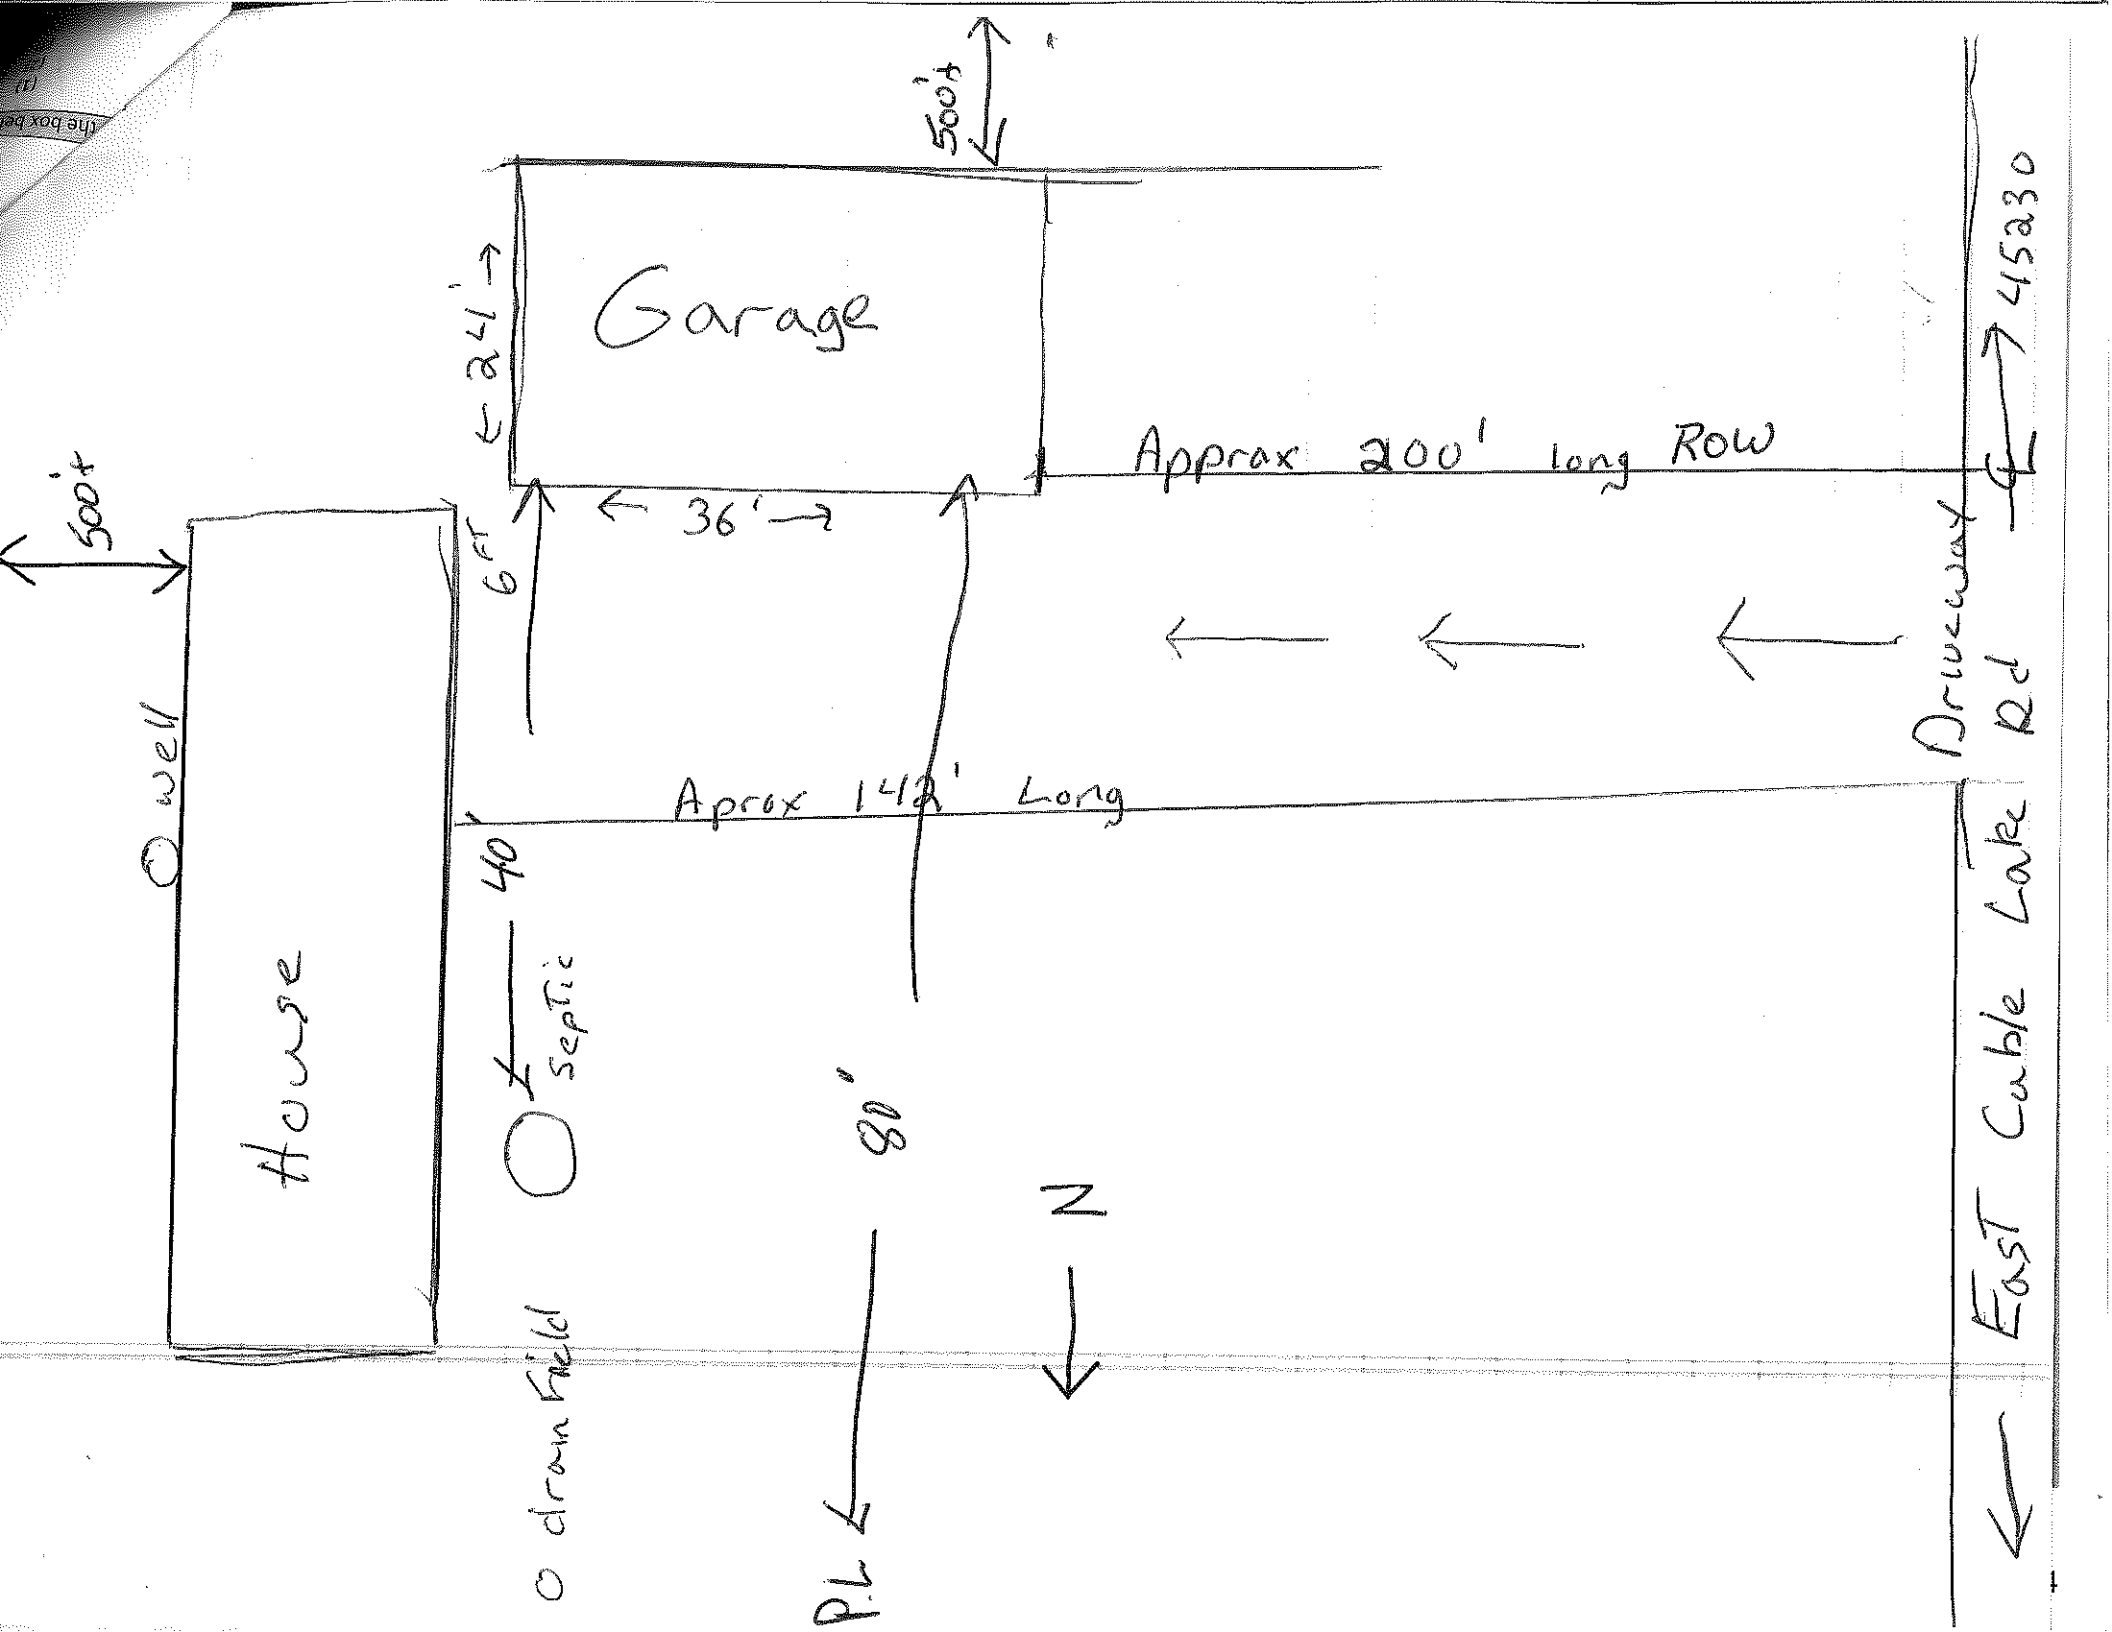 the box be
(1)
500'±
500'±
← 24' →
Garage
Approx 200' long ROW
← 36' →
6 FT
45230
Driveway
well
Aprox 142' Long
40'
septic
House
80'
N
East Cable Lake Rd
drain Field
P.L